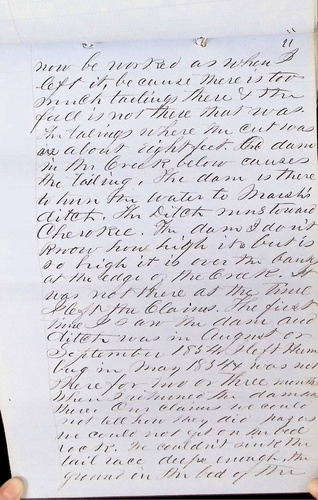 11
now be worked as when I
left it, because there is too
much tailings there & the
fall is not there that was.
The talings where the cut was
are about eight feet. The dam
in the Creek below causes
the tailing. The dam is there
to turn the water to Marsh's
ditch. The Ditch runs toward
Cherokee. The dam I don't
know how high it is but is
so high it is over the bank
at the edge of the Creek. It
was not there at the time
I left the Claims. The first
time I saw the dam and
ditch was in August or
September 1854. I left Hum
bug in May 1854 & was not
there for two or three months
when I returned the dam was
there. Our claims we could
not tell how they did pay as
we could not get on the bed
rock. We couldn't sink the
tail race deep enough, the
ground on the bed of the